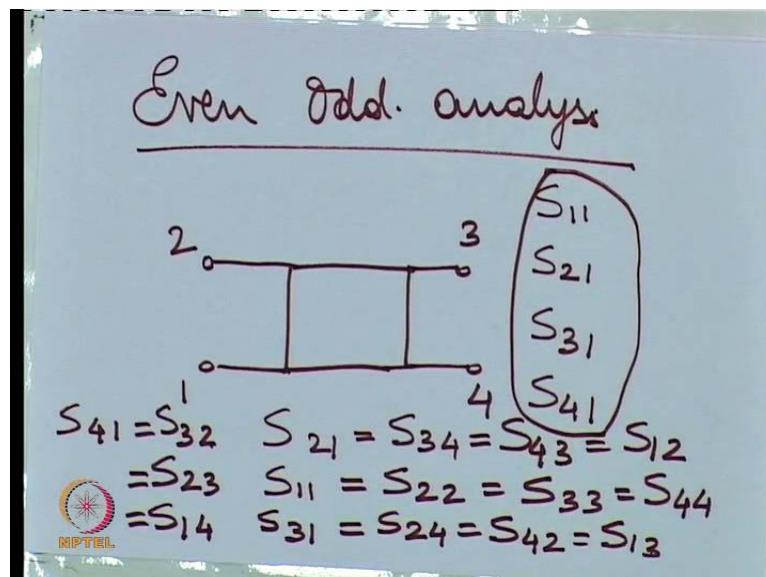 Even Odd. analys.
2
3
1
4
S11
S21
S31
S41
S41 = S32
= S23
= S14
S21 = S34 = S43 = S12
S11 = S22 = S33 = S44
S31 = S24 = S42 = S13
NPTEL